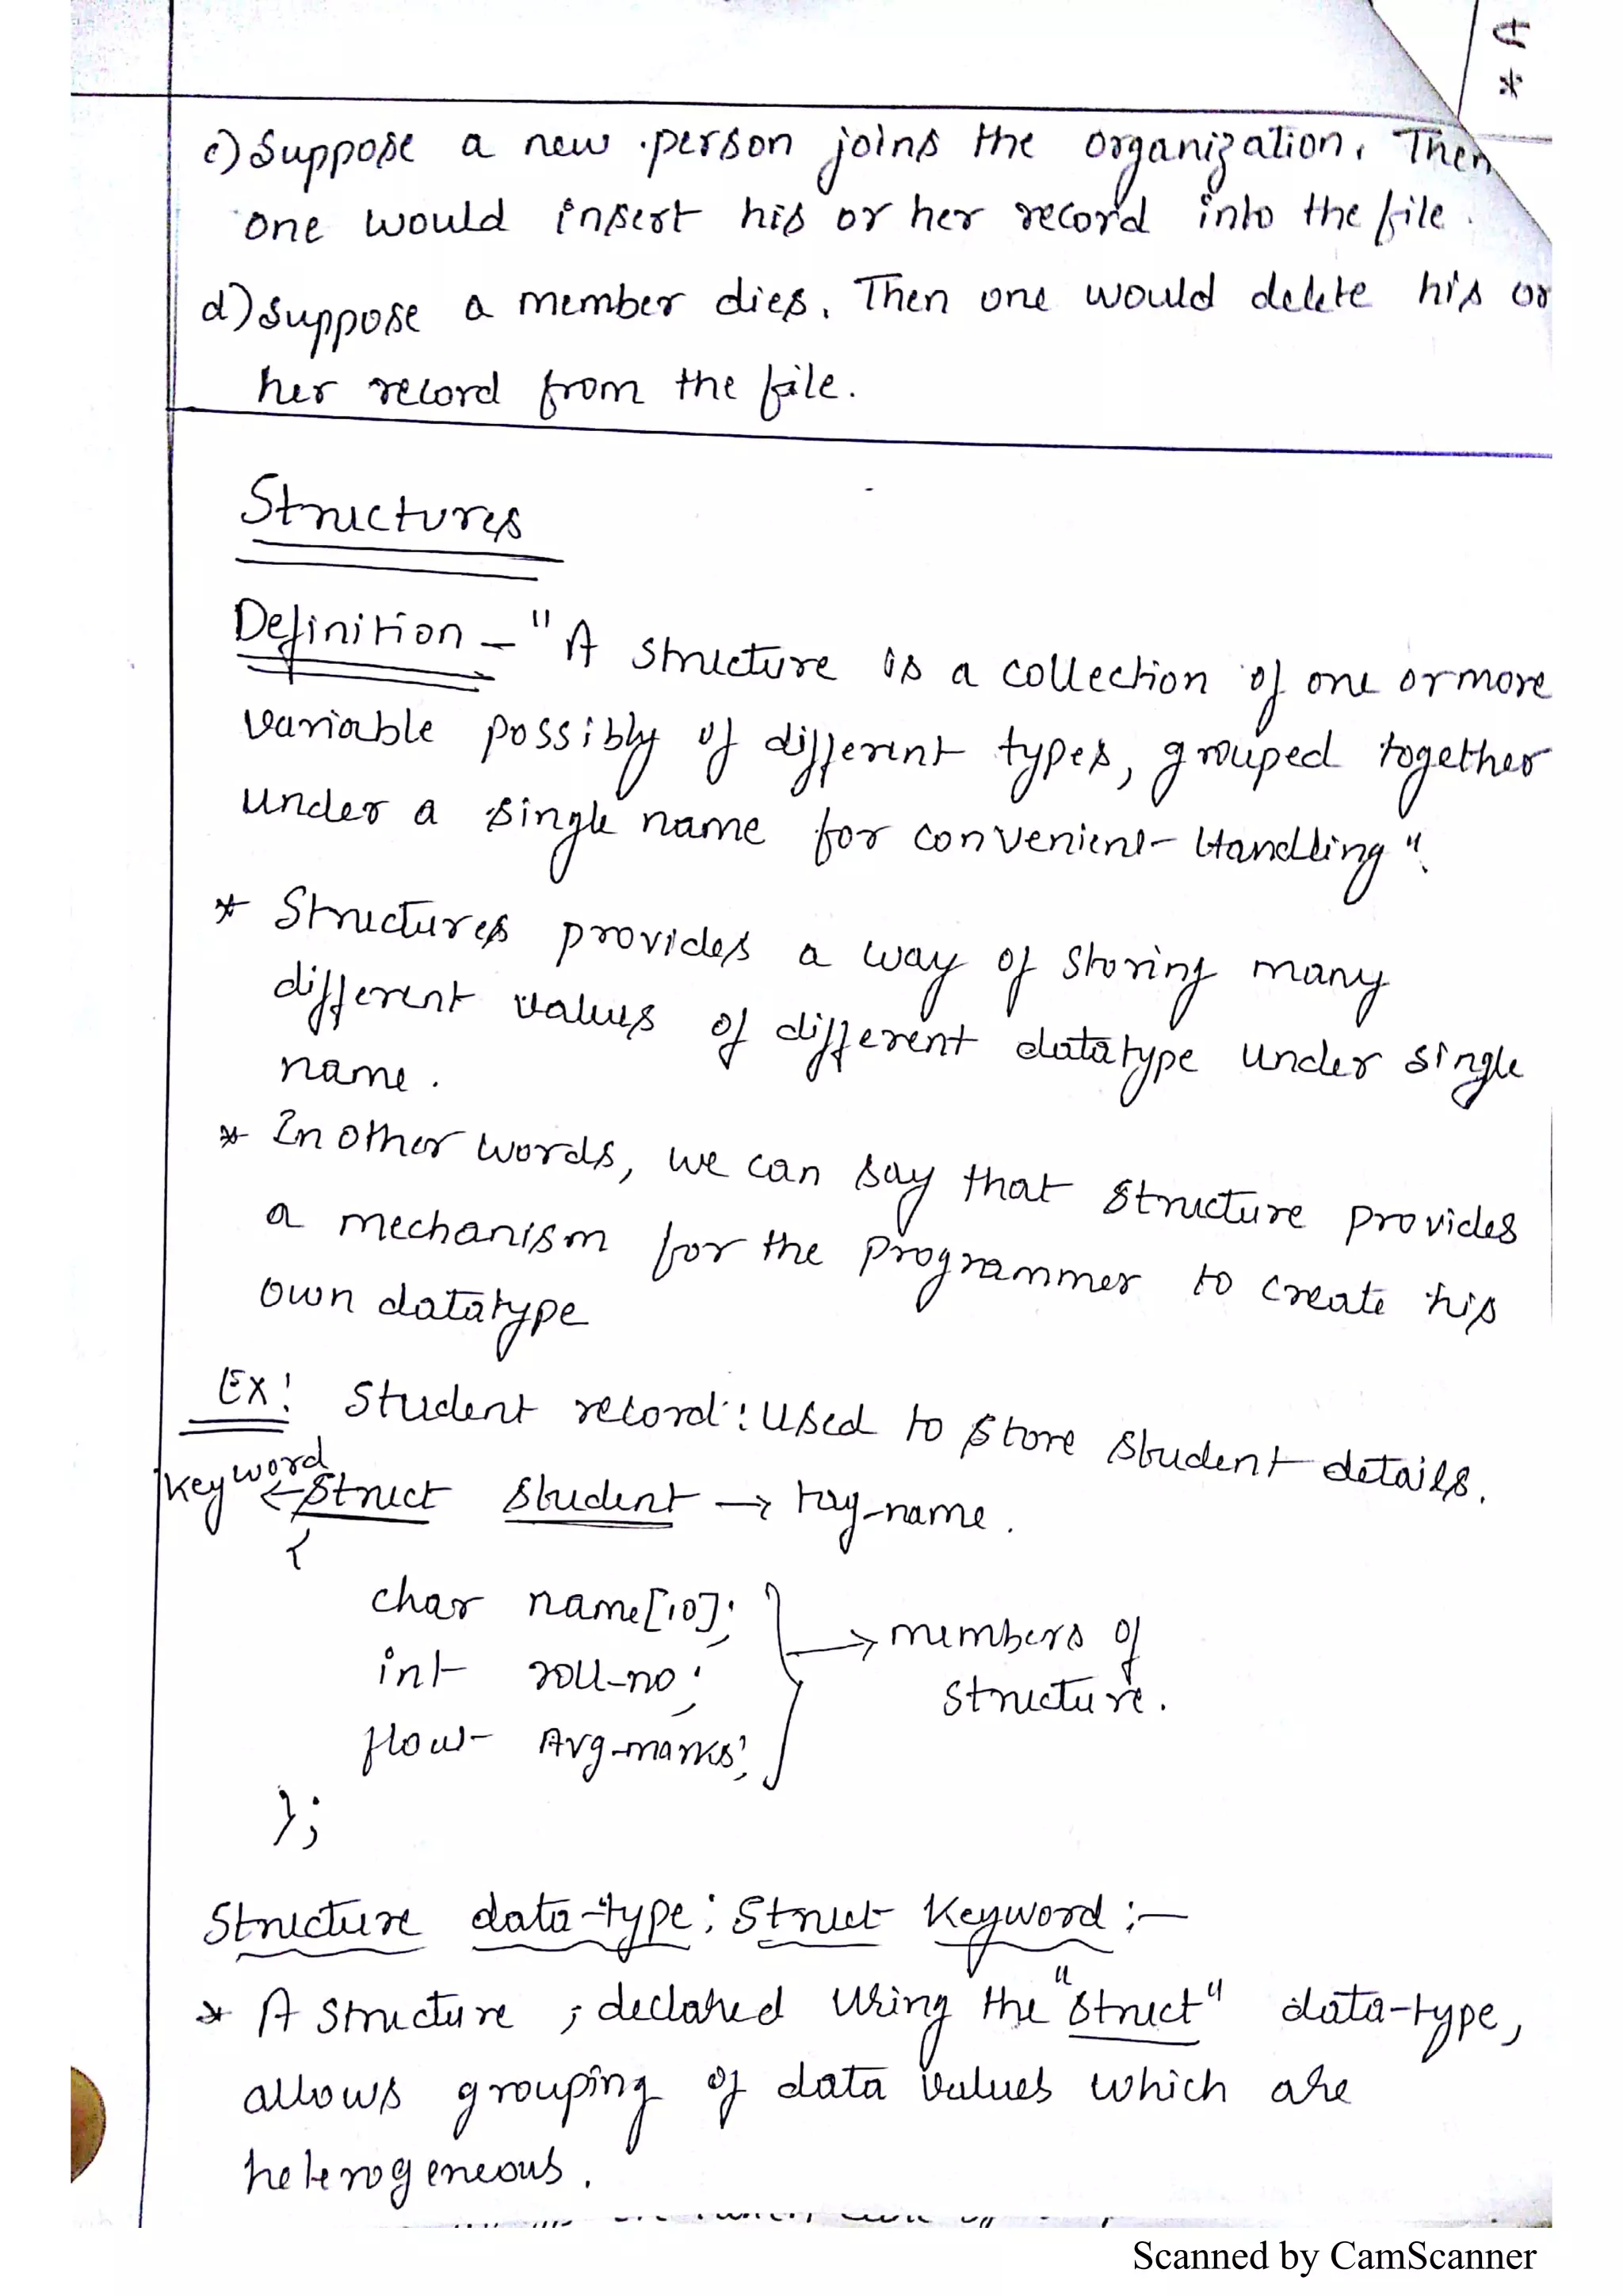 c) Suppose a new person joins the organization. Then
one would insert his or her record into the file.
d) Suppose a member dies. Then one would delete his or
her record from the file.
Structures
Definition - "A structure is a collection of one or more
variable possibly of different types, grouped together
under a single name for convenient Handling".
* Structures provides a way of storing many
different values of different datatype under single
name.
* In other words, we can say that structure provides
a mechanism for the programmer to create his
own datatype
Ex: Student record: used to store student details.
Keyword ← struct student → tag-name.
{
char name[10];
int roll-no; → members of
structure.
float Avg-marks;
};
Structure data-type: Struct Keyword :-
* A structure, declared using the "struct" data-type,
allows grouping of data values which are
heterogeneous.
Scanned by CamScanner